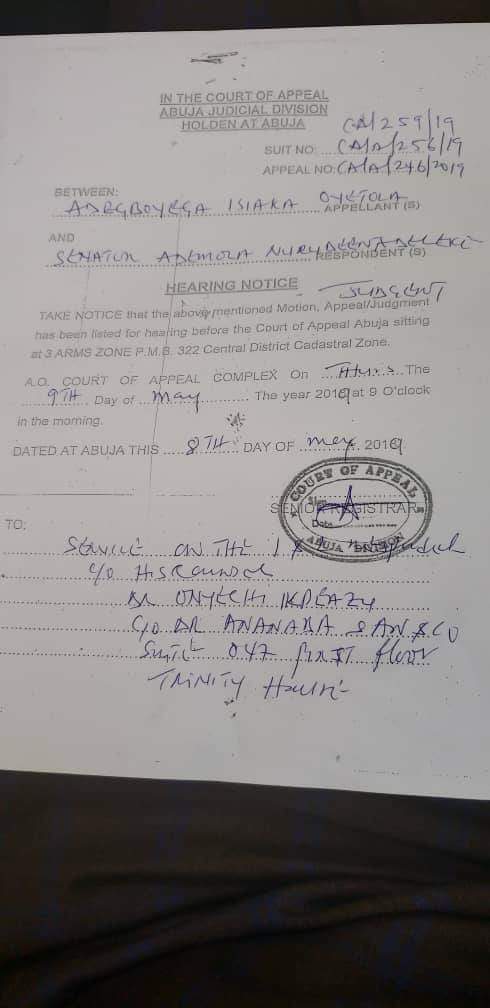 IN THE COURT OF APPEAL
ABUJA JUDICIAL DIVISION
HOLDEN AT ABUJA
CA/A/259/19
SUIT NO: CA/A/256/19
APPEAL NO: CA/A/246/2019
BETWEEN:
ADEGBOYEGA ISIAKA OYETOLA
APPELLANT (S)
AND
SENATOR ADEMOLA NURUDEEN ADELEKE
RESPONDENT (S)
HEARING NOTICE
TAKE NOTICE that the above mentioned Motion, Appeal/Judgment
has been listed for hearing before the Court of Appeal Abuja sitting
at 3 ARMS ZONE P.M.B. 322 Central District Cadastral Zone.
A.O. COURT OF APPEAL COMPLEX On Thurs. The
9TH Day of May The year 2019 at 9 O'clock
in the morning.
DATED AT ABUJA THIS 8TH DAY OF May 2019
COURT OF APPEAL
SENIOR REGISTRAR
Sign
Date
ABUJA DIVISION
TO:
SERVICE ON THE 1st
C/O HIS COUNSEL
DR ONYECHI IKPEAZU
C/O DR
SUITE 047 FIRST floor
TRINITY House